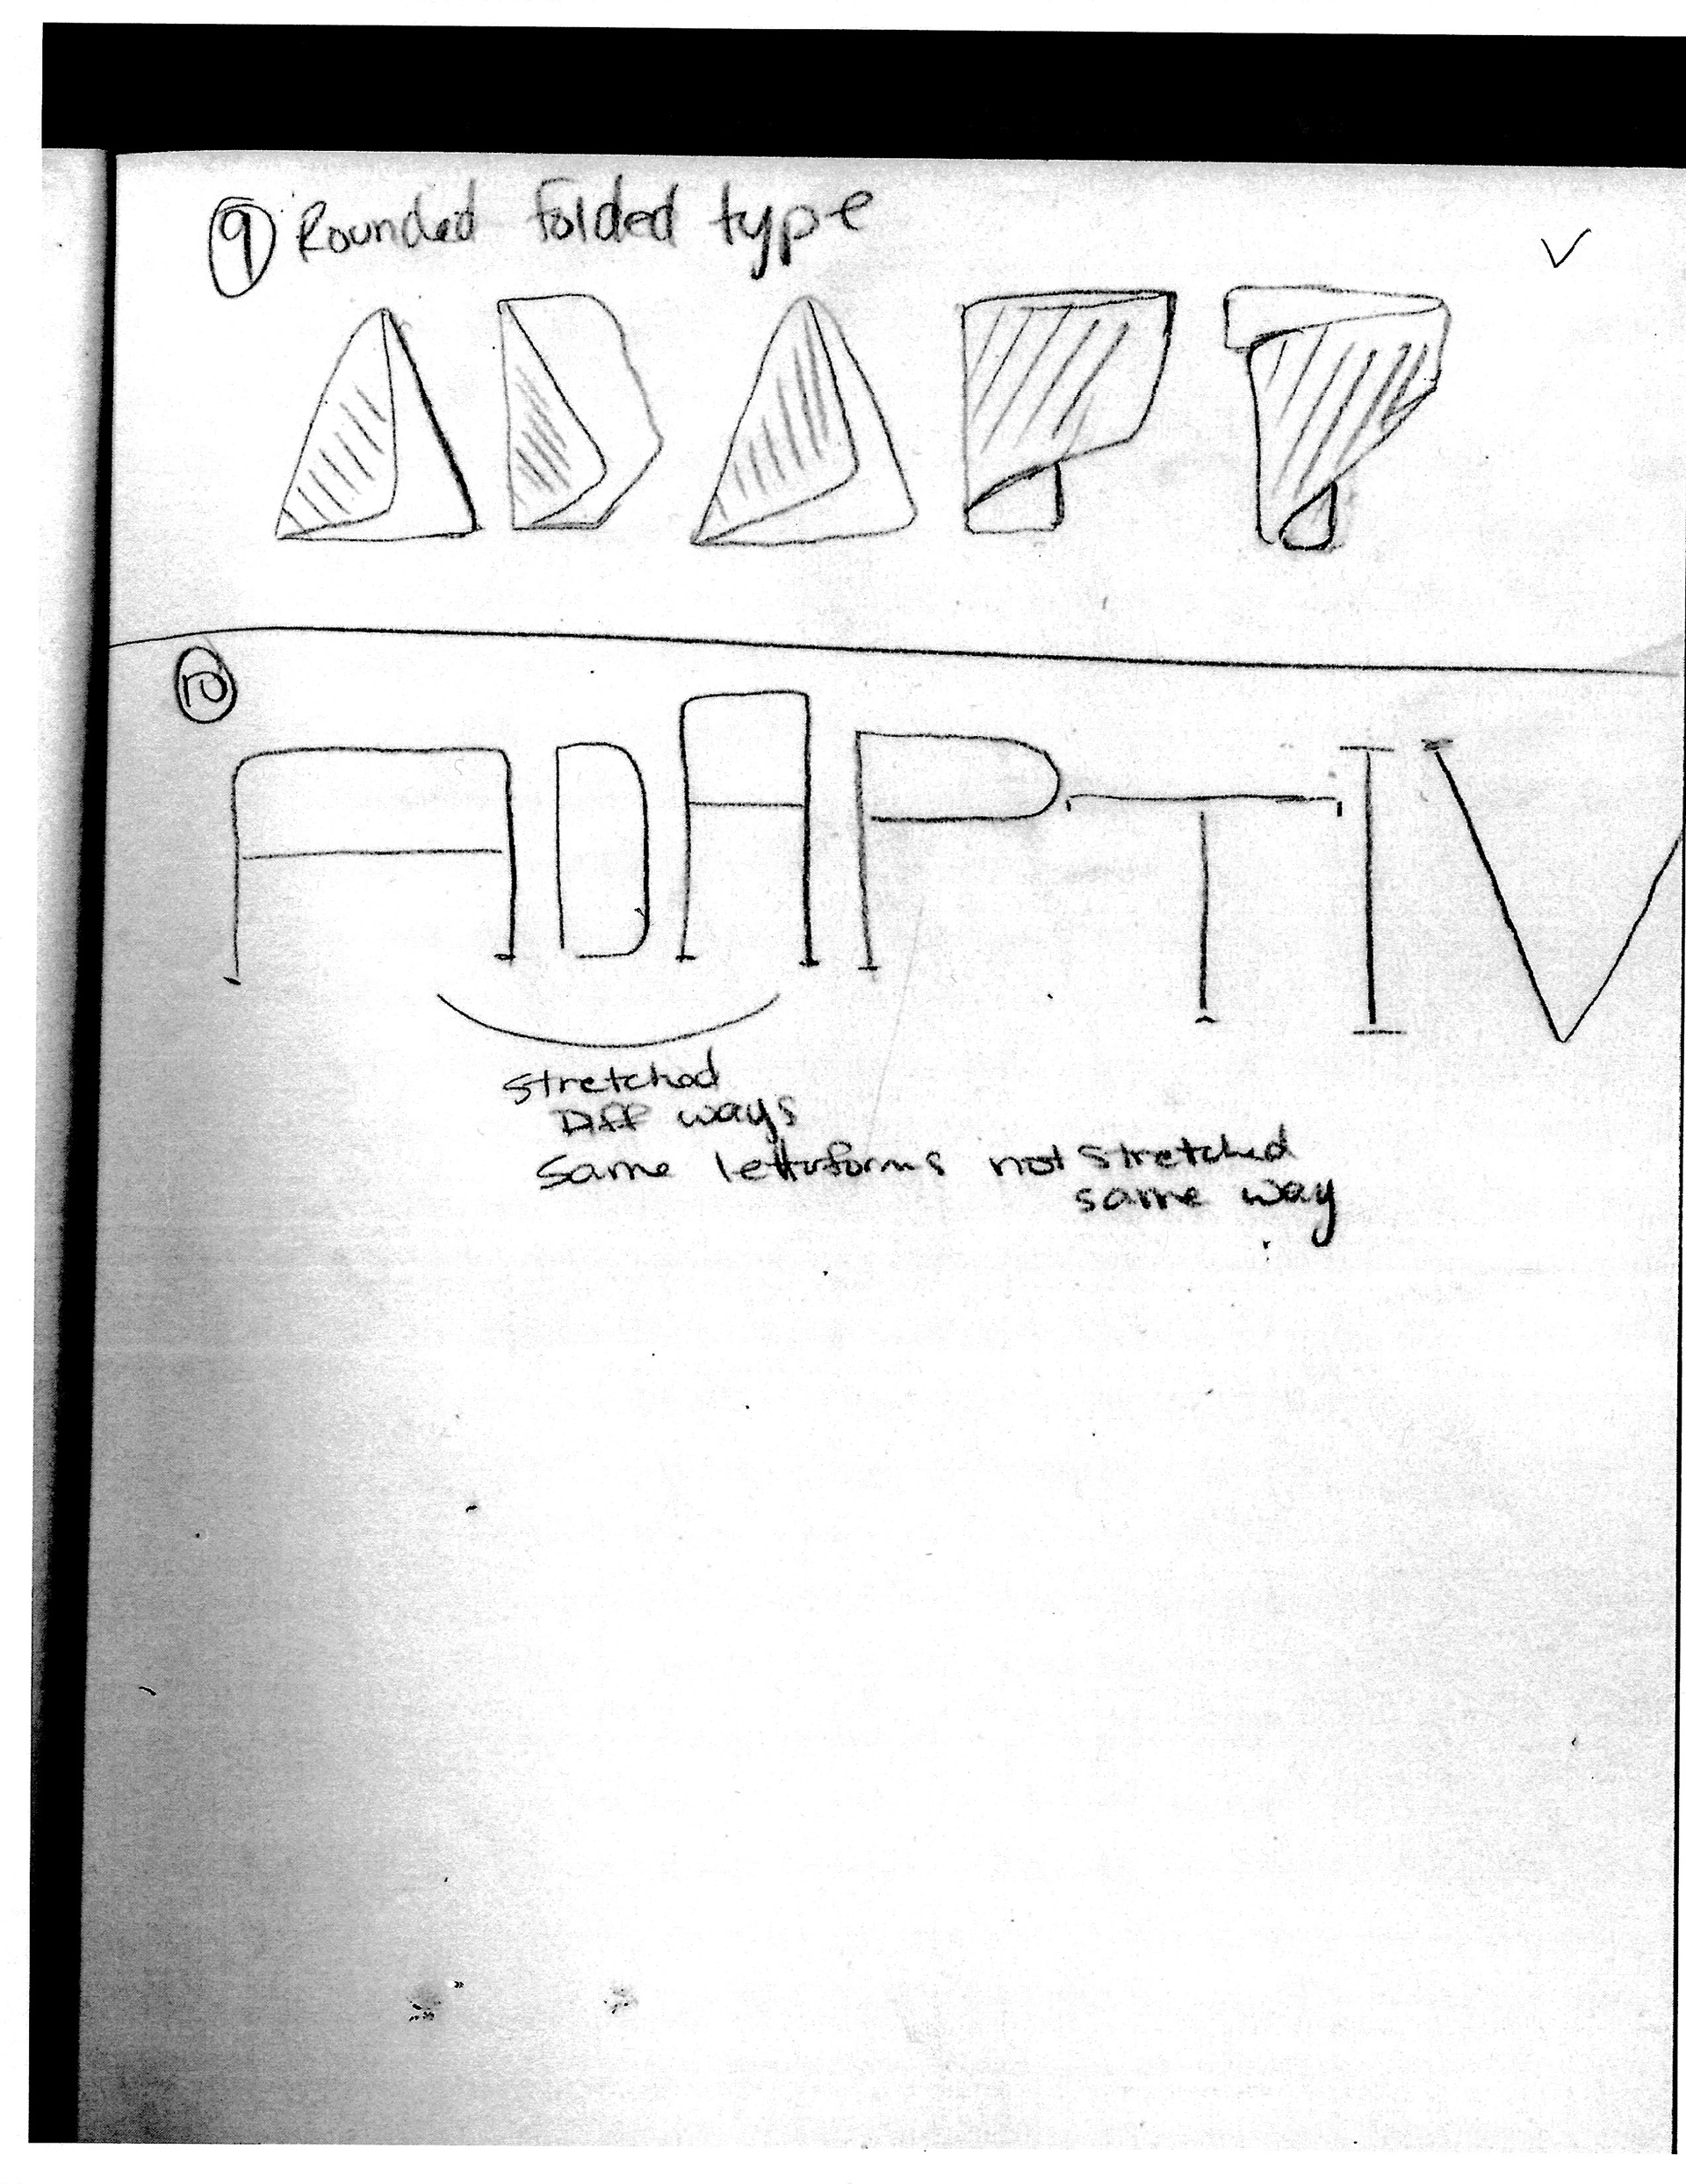 9 Rounded folded type
ADAPT
10
ADAPTIV
stretched
Diff ways
Same letterforms not stretched
same way